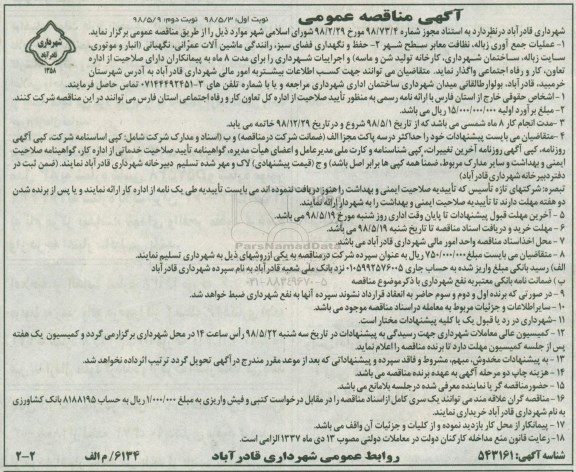 آگهی مناقصه عمومی
نوبت اول: ۹۸/۵/۳ نوبت دوم: ۹۸/۵/۹
شهرداری قادرآباد
۱۳۵۸
شهرداری قادرآباد درنظردارد به استناد مجوز شماره ۹۸/۷۳/۴ مورخ ۹۸/۲/۲۹ شورای اسلامی شهر موارد ذیل را از طریق مناقصه عمومی برگزار نماید.
۱- عملیات جمع آوری زباله، نظافت معابر سطح شهر ۲- حفظ و نگهداری فضای سبز، رانندگی ماشین آلات عمرانی، نگهبانی (انبار و موتوری،
سایت زباله، ساختمان شهرداری، کارخانه تولید شن و ماسه) و اجراییات شهرداری را برای مدت ۸ ماه به پیمانکاران دارای صلاحیت از اداره
تعاون، کار و رفاه اجتماعی واگذار نماید. متقاضیان می توانند جهت کسب اطلاعات بیشتر به امور مالی شهرداری قادرآباد به آدرس شهرستان
خرمبید، قادرآباد، بولوارطالقانی میدان شهرداری ساختمان اداری شهرداری مراجعه و یا با شماره تلفن های ۳-۰۷۱۴۴۴۹۲۴۵۱ تماس حاصل فرمایند.
۱-اشخاص حقوقی خارج از استان فارس با ارائه نامه رسمی به منظور تأیید صلاحیت از اداره کل تعاون کار و رفاه اجتماعی استان فارس می توانند در این مناقصه شرکت کنند.
۲-مبلغ برآورد اولیه ۱۵/۰۰۰/۰۰۰/۰۰۰ ریال می باشد.
۳-مدت انجام کار ۸ ماه شمسی می باشد که از تاریخ ۹۸/۵/۱ شروع و در تاریخ ۹۸/۱۲/۲۹ خاتمه می یابد.
۴-متقاضیان می بایست پیشنهادات خود را حداکثر در سه پاکت مجزا الف (ضمانت شرکت درمناقصه) و ب (اسناد و مدارک شرکت شامل: کپی اساسنامه شرکت، کپی آگهی
روزنامه، کپی آگهی روزنامه آخرین تغییرات، کپی شناسنامه و کارت ملی مدیرعامل و اعضای هیأت مدیره، گواهینامه تأیید صلاحیت خدماتی از اداره کار، گواهینامه صلاحیت
ایمنی و بهداشت و سایر مدارک مربوط، ضمناً همه کپی ها برابر اصل باشد) و ج (قیمت پیشنهادی) لاک و مهر شده تسلیم دبیرخانه شهرداری قادرآباد نمایند (ضمن ثبت در
دفتر دبیرخانه شهرداری قادرآباد)
تبصره: شرکتهای تازه تأسیس که تأییدیه صلاحیت ایمنی و بهداشت را هنوز دریافت ننموده اند می بایست تأییدیه طی یک نامه از اداره کار ارائه نمایند و یا پس از برنده شدن
دو هفته مهلت دارند تا تأییدیه صلاحیت ایمنی و بهداشت را به شهردار ارائه نمایند.
۵- آخرین مهلت قبول پیشنهادات تا پایان وقت اداری روز شنبه مورخ ۹۸/۵/۱۹ می باشد.
۶- مهلت خرید و دریافت اسناد مناقصه تا تاریخ شنبه ۹۸/۵/۱۹ می باشد.
۷- محل اخذ اسناد مناقصه واحد امور مالی شهرداری قادرآباد می باشد.
۸- متقاضیان می بایست مبلغ ۷۵۰/۰۰۰/۰۰۰ ریال به عنوان سپرده شرکت درمناقصه به یکی از روشهای ذیل به شهرداری تسلیم نمایند.
الف) رسید بانکی مبلغ واریز شده به حساب جاری ۰۱۰۵۹۹۲۵۷۶۰۰۵ نزد بانک ملی شعبه قادرآباد به نام سپرده شهرداری قادر آباد
ب) ضمانت نامه بانکی معتبر به نفع شهرداری با ذکر موضوع مناقصه
۹- در صورتی که برنده اول و دوم و سوم حاضر به انعقاد قرارداد نشوند سپرده آنها به نفع شهرداری ضبط خواهد شد.
۱۰- سایر اطلاعات و جزئیات مربوط به معامله در اسناد مناقصه موجود می باشد.
۱۱-شهرداری در رد یا قبول یک یا کلیه پیشنهادات مختار است.
۱۲- کمیسیون عالی معاملات شهرداری جهت رسیدگی به پیشنهادات در تاریخ سه شنبه ۹۸/۵/۲۲ رأس ساعت ۱۴ در محل شهرداری برگزار می گردد و کمیسیون یک هفته
پس از جلسه کمیسیون مهلت دارد تا برنده مناقصه را اعلام نماید.
۱۳- به پیشنهادات مخدوش، مبهم، مشروط و فاقد سپرده و پیشنهاداتی که بعد از موعد مقرر مندرج در آگهی تحویل گردد ترتیب اثر داده نخواهد شد.
۱۴- هزینه چاپ دو مرحله آگهی به عهده برنده مناقصه می باشد.
۱۵- حضور مناقصه گر یا نماینده معرفی شده درجلسه بلامانع می باشد.
۱۶- مناقصه گران علاقه مند می توانند یک سری کامل از اسناد مناقصه را در مقابل درخواست کتبی و فیش واریزی به مبلغ ۱/۰۰۰/۰۰۰ ریال به حساب ۸۱۸۸۱۹۵ بانک کشاورزی
به نام شهرداری قادر آباد خریداری نمایند.
۱۷- پیمانکار از محل کار بازدید نموده و از کلیات و جزئیات آن واقف می باشد.
۱۸- رعایت قانون منع مداخله کارکنان دولت در معاملات دولتی مصوب ۱۳ دی ماه ۱۳۳۷ الزامی است.
شناسه آگهی: ۵۴۳۱۶۱
روابط عمومی شهرداری قادرآباد
۶۱۳۴/م الف
۲-۲
ParsNamadData